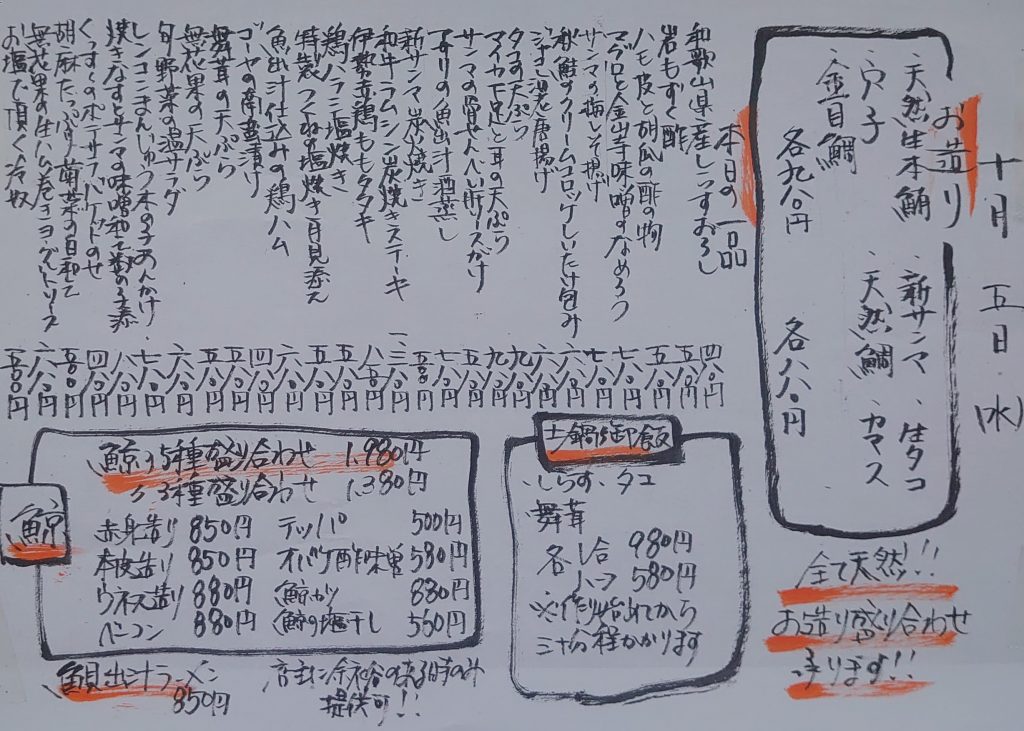 十月 五日 (水)
お造り
・天然生本鮪 ・新サンマ ・生タコ
・穴子 ・天然鯛 ・カマス
・金目鯛
各九八〇円 各八八〇円
全て天然!!
お造り盛り合わせ
承ります!!
本日の一品
和歌山県産しらすおろし 四八〇円
岩もずく酢 五八〇円
ハモ皮と胡瓜の酢の物 五八〇円
マグロと金山寺味噌のなめろう 六八〇円
サンマの梅しそ揚げ 七八〇円
秋鮭のクリームコロッケしいたけ包み 六八〇円
タコの天ぷら 九八〇円
マイカ下足と耳の天ぷら 九八〇円
サンマの骨せんべい 五八〇円
アサリの魚出汁酒蒸し 七八〇円
新サンマ炭火焼き
和牛ラムシン炭火焼きステーキ
伊勢赤鶏ももタタキ 八五〇円
鶏ハラミ塩焼き 五八〇円
特製つくね塩焼き月見添え
魚出汁仕込みの鶏ハム 六八〇円
ゴーヤの南蛮漬け 四八〇円
舞茸の天ぷら 五八〇円
無花果の天ぷら 五八〇円
旬野菜の温サラダ 六八〇円
レンコンまんじゅう木の子あんかけ 七八〇円
焼きなすとサンマの味噌和え 八八〇円
くっすくの水テサラダ 四八〇円
胡麻たっぷり菊菜の白和え 五〇〇円
無花果の生ハム巻きヨーグルトソース 六八〇円
お塩で頂く冷奴 五〇〇円
土鍋御飯
・しらす・タコ
舞茸
各一合 980円
ハーフ 580円
※作り始めてから
三十分程かかります
鯨
鯨の5種盛り合わせ 1,980円
〃 3種盛り合わせ 1,380円
赤身造り 850円 テッパ 500円
本皮造り 850円 オバケ酢味噌 580円
ウネス造り 880円 鯨カツ 880円
ベーコン 880円 鯨の塩干し 560円
魚貝出汁ラーメン
850円
店主に余裕の有る時のみ
提供可!!